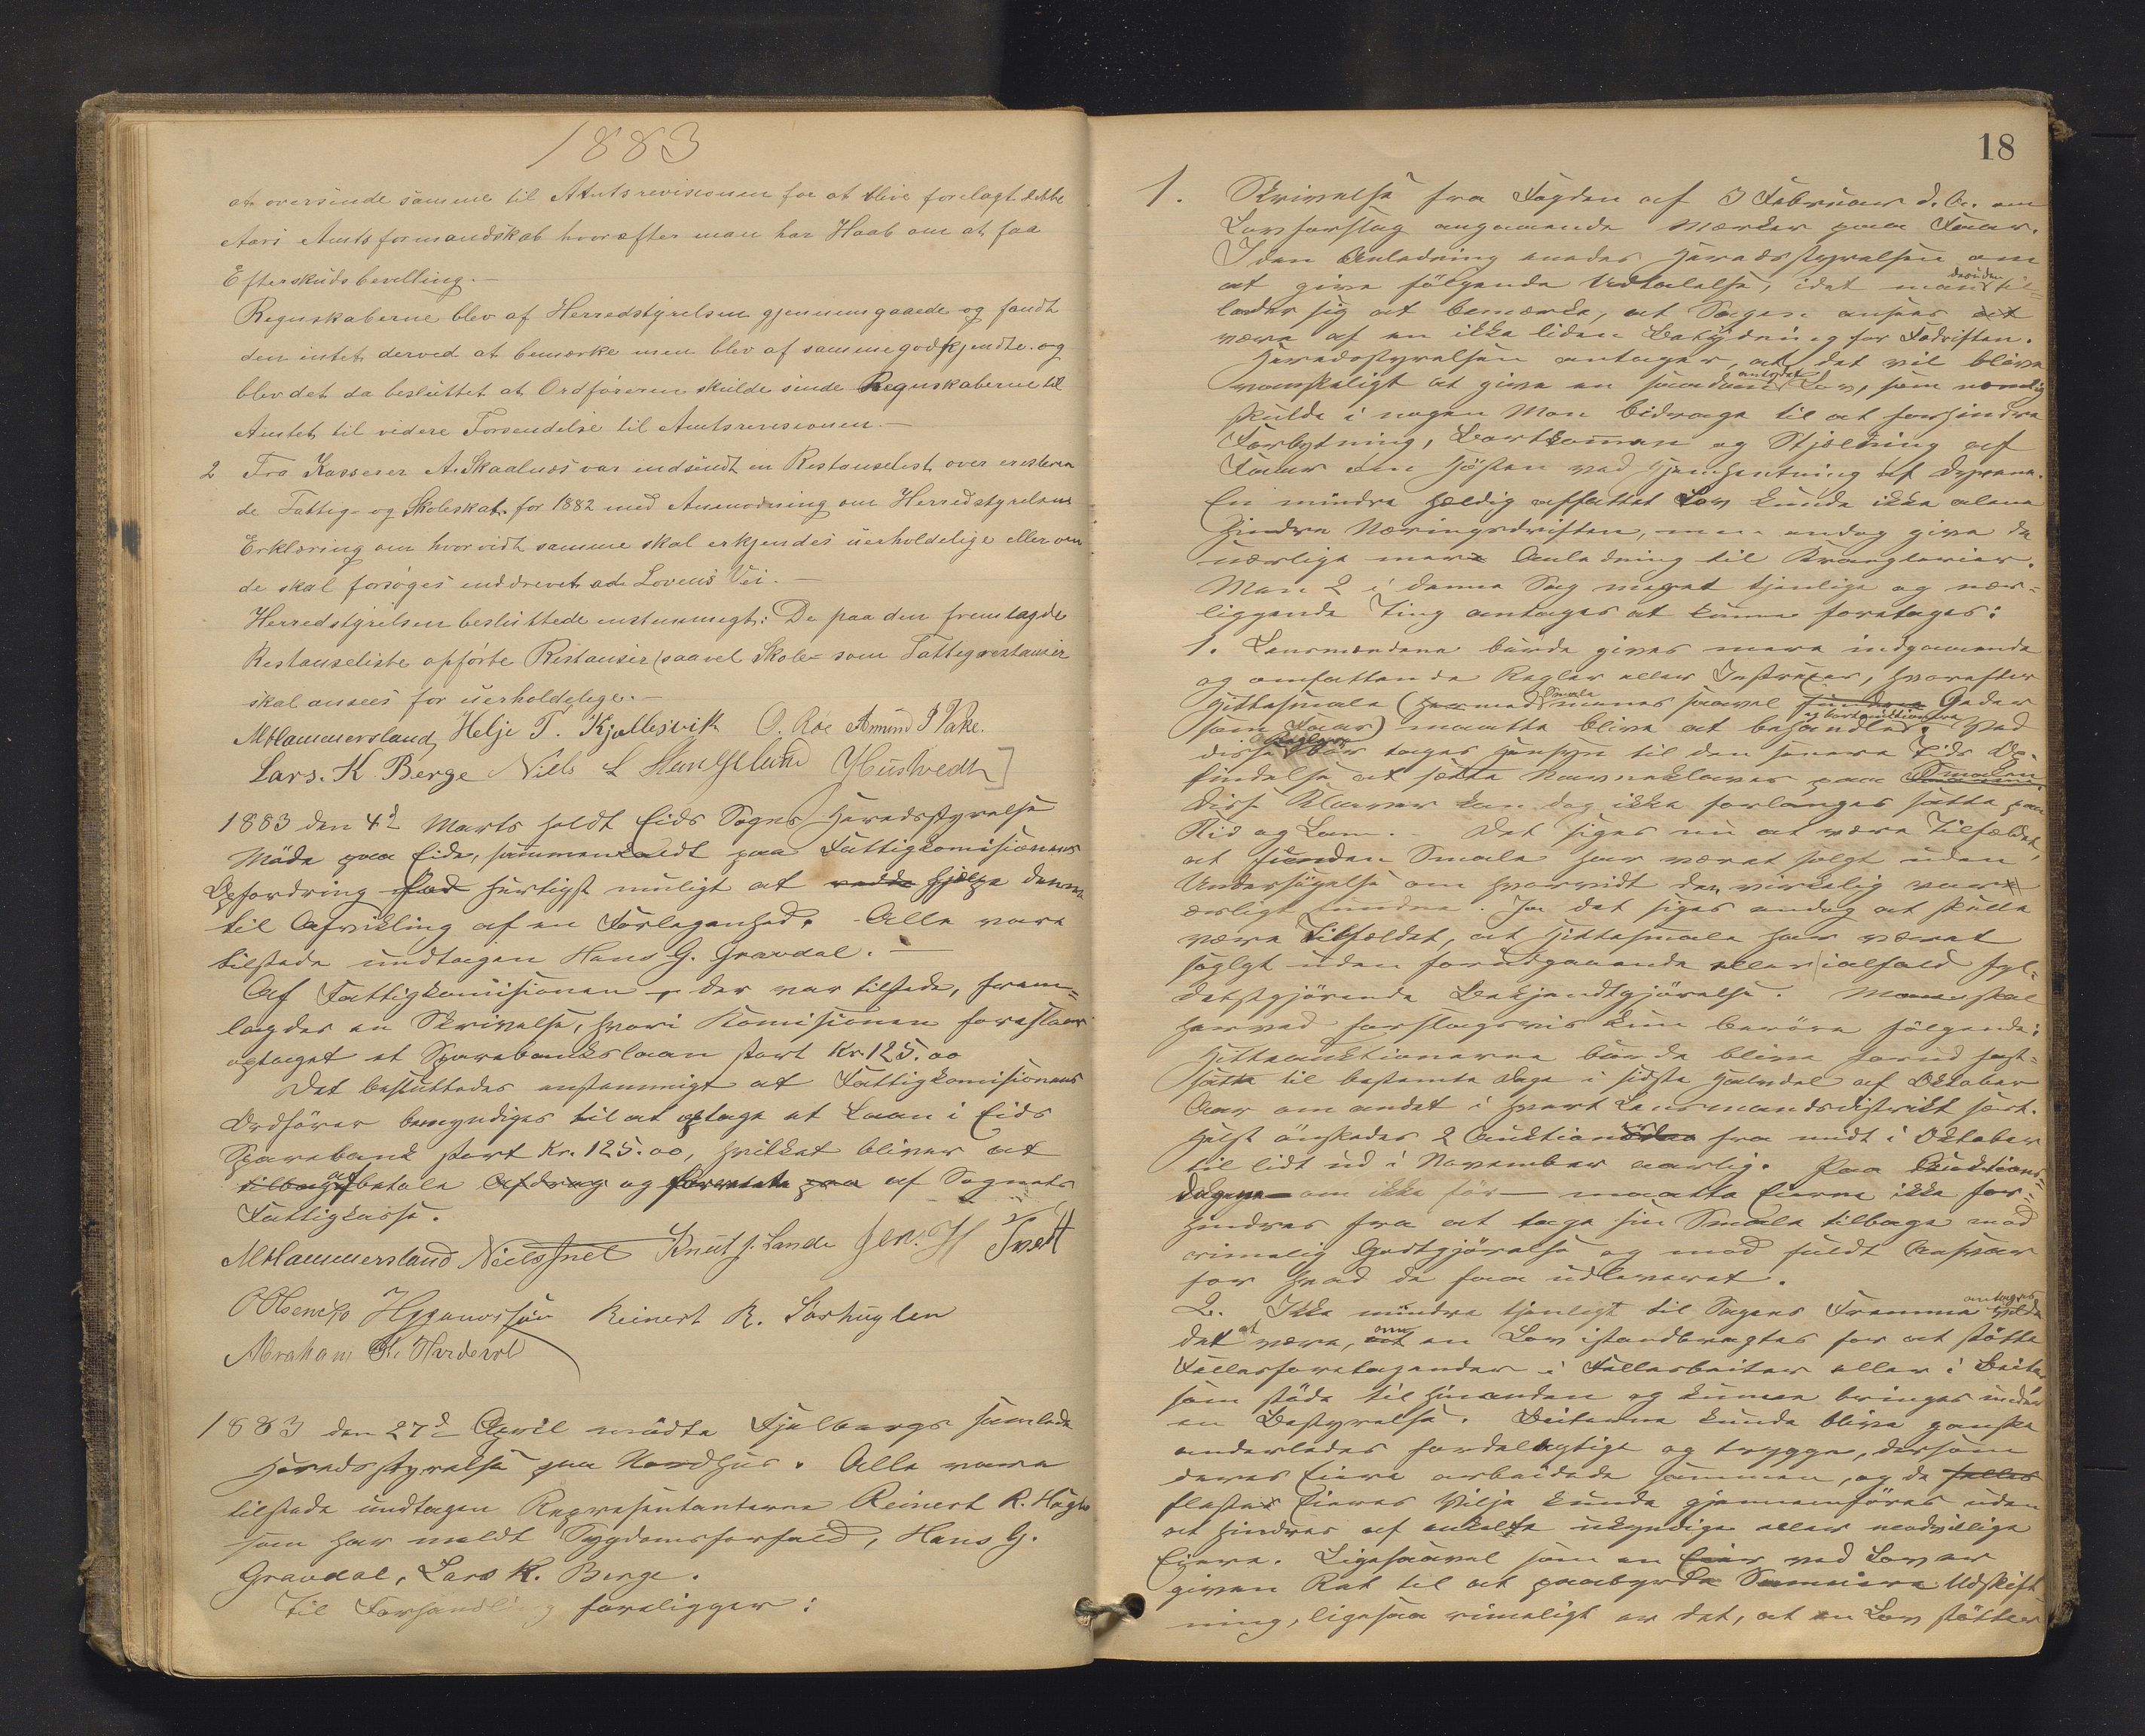 1883
at oversende samme til Amtsrevisionen for at blive forelagt dette
Aars Amtsformandskab hvorefter man har Haab om at faa
Efterskudsbevilling.—
Regnskaberne blev af Herredstyrelsen gjennemgaaede og fandt
den intet derved at bemærke men blev af samme godkjendte og
blev det da besluttet at Ordføreren skulde sende Regnskaberne til
Amtet til videre Forsendelse til Amtsrevisionen.—
2 Fra Kasserer A. Skaalnes var indsendt en Restanselist over
de Fattig- og Skoleskat for 1882 med Anmodning om Herredstyrelsens
Erklæring om hvorvidt samme skal erkjendes uerholdelige eller om
de skal forsøges inddrevet ad Lovens Vei.—
Herredstyrelsen besluttede enstemmigt: De paa den fremlagde
Restanseliste opførte Restanser (saavel Skole- som Fattigrestanser
skal ansees for uerholdelige.—
M Hammersland Helje T. Kjollesvik O. Røe Amund
Lars. K. Berge Niels Hustvedt
1883 den 4de Marts holdt Eids Sogns Heredsstyrelse
Møde paa Eide, sammenkaldt paa Fattigkomisionens
Opfordring hurtigst muligt at hjelpe denne
til Afvikling af en Forlegenhed. Alle vare
tilstede undtagen Hans G. Gravdal.—
Af Fattigkomisionen, der var tilstede, frem=
lagdes en Skrivelse, hvori Komisionen foreslaar
optaget et Sparebankslaan stort Kr. 125.00
Det besluttedes enstemmigt at Fattigkomisionens
Ordfører bemyndiges til at optage et Laan i Eids
Sparebank stort Kr. 125.00, hvilket bliver at
tilbagebetale Afdrag og af Sognets
Fattigkasse.
M Hammersland Knut J. Sande Jens. H Tvedt
Reinert R. Sørhuglen
Abraham
1883 den 27de April mødte Fjelbergs samlede
Heredsstyrelse paa Nordhus. Alle vare
tilstede undtagen Repræsentanterne Reinert R. Hugle
som har meldt Sygdomsforfald, Hans G.
Gravdal, Lars K. Berge.
Til Forhandling foreligger:
18
1. Skrivelse fra Fogden af 3 Februar d. A. om
Lovforslag angaaende Mærker paa Faar.
I den Anledning enedes Heredsstyrelsen om
at give følgende Udtalelse, idet man desuden til=
lader sig at bemærke, at Sagen ansees at
være af en ikke liden Betydning for Fædriften.
Heredsstyrelsen antager, at det vil blive
vanskeligt at give en saadan antydet Lov, som nemlig
skulde i nogen Mon bidrage til at forhindre
Forbytning, Bortkommen og Stjeling af
Faar om Høsten ved Hjemhentning af Dyrene.
En mindre heldig affattet Lov kunde ikke alene
hindre Næringsdriften, men endog give de
uærlige mere Anledning til Kranglerier.
Men 2 i denne Sag meget tjenlige og nær=
liggende Ting antages at kunne foretages:
1. Lensmændene burde gives mere indgaaende
og omfattende Regler eller Instruxer, hvorefter
Hittesmale (hermed menes saavel Geder
som Faar) maatte blive at behandles og bortauktionere. Ved
disse Reglere bør tages Hensyn til den senere Tids Op=
findelse at sætte Navneklaver paa Smalen
Disse Klaver kan dog ikke forlanges satte paa
Kid og Lam.— Det siges nu at være Tilfældet,
at funden Smale har været solgt uden
Undersøgelse om hvorvidt den virkelig var
ærligt funden. Ja det siges endog at skulle
være Tilfældet, at Hittesmale har været
solgt uden forudgaaende eller ialfald fyl=
destgjørende Bekjendtgjørelse. Man skal
herved forslagsvis kun berøre følgende:
Hitteauktionerne burde blive forud fast=
satte til bestemte Dage i sidste Halvdel af Oktober
Aar om andet i hvert Lensmandsdistrikt først.
Helst ønskedes 2 Auktioner fra midt i Oktober
til lidt ud i November aarlig. Paa Auktions=
dagene — om ikke før — maatte Eierne ikke for=
hindres fra at tage sin Smale tilbage mod
rimelig Godtgjørelse og mod fuldt Ansvar
for hvad de faar udleveret.
2. Ikke mindre tjenligt til Sagens Fremme antages
det at være, om en Lov istandbragtes for at støtte
Fællesforetagender i Fællesbeiter eller i Beiter
som støde til hinanden og kunne bringes under
en Bestyrelse. Beiterne kunde blive ganske
anderledes fordelagtige og trygge, dersom
deres Eiere arbeidede sammen, og de
flestes Eieres Vilje kunde gjennemføres uden
at hindres af enkelte ukyndige eller modvillige
Eiere. Ligesaavel som en Eier ved Lov er
given Ret til at paabyrde Udskift
ning, ligesaa rimeligt er det, at en Lov støtter